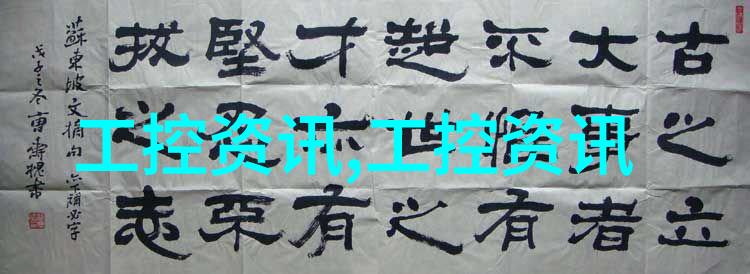 古之立
大事者
不惟有
超世之
才亦有
堅忍不
拔之志
蘇東坡文摘句
戊子之冬曹壽槐書
工控资讯,工控资讯